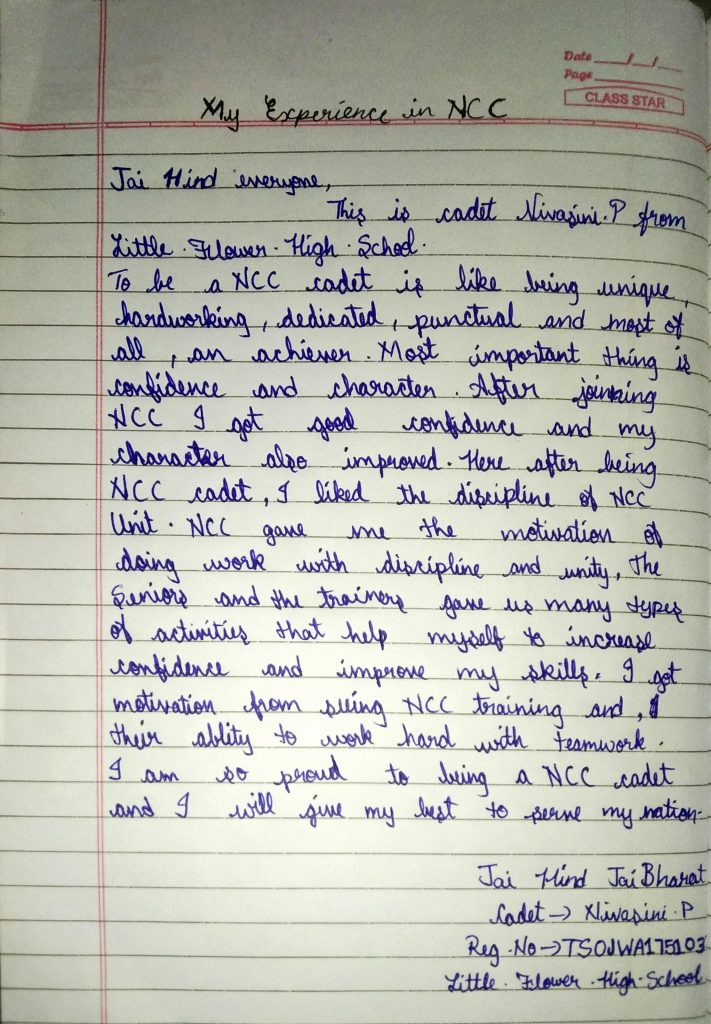 Date __/__/__
Page
CLASS STAR
My Experience in NCC
Jai Hind everyone,
This is cadet Nivasini.P from
Little.Flower.High.School.
To be a NCC cadet is like being unique,
hardworking, dedicated, punctual and most of
all, an achiever. Most important thing is
confidence and character. After joinning
NCC I got good confidence and my
character also improved. Here after being
NCC cadet, I liked the discipline of NCC
Unit. NCC gave me the motivation of
doing work with discipline and unity, The
Seniors and the trainers gave us many types
of activities that help myself to increase
confidence and improve my skills. I got
motivation from seing NCC training and,
their ablity to work hard with teamwork.
I am so proud to being a NCC cadet
and I will give my best to serve my nation.
Jai Hind Jai Bharat
Cadet → Nivasini.P
Reg.No → TS0JWA175103
Little.Flower.High-School